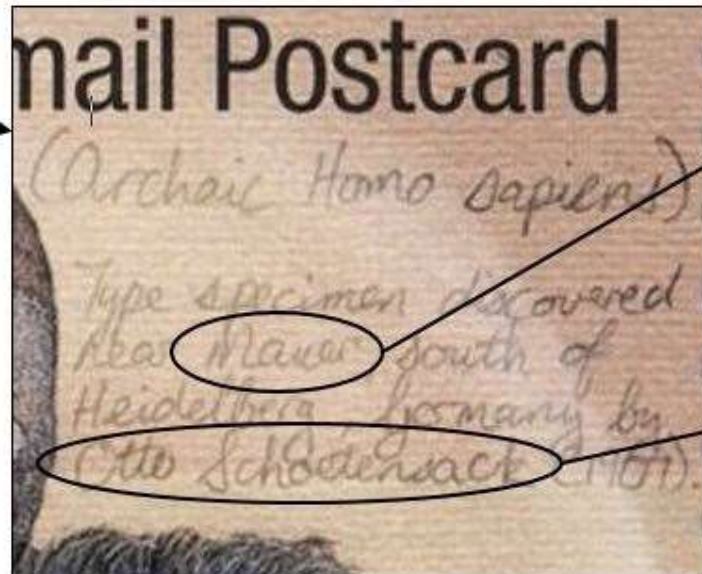 mail Postcard
(Archaic Homo sapiens)
Type specimen discovered
near Mauer, south of
Heidelberg, Germany by
Otto Schoetensack (1907).